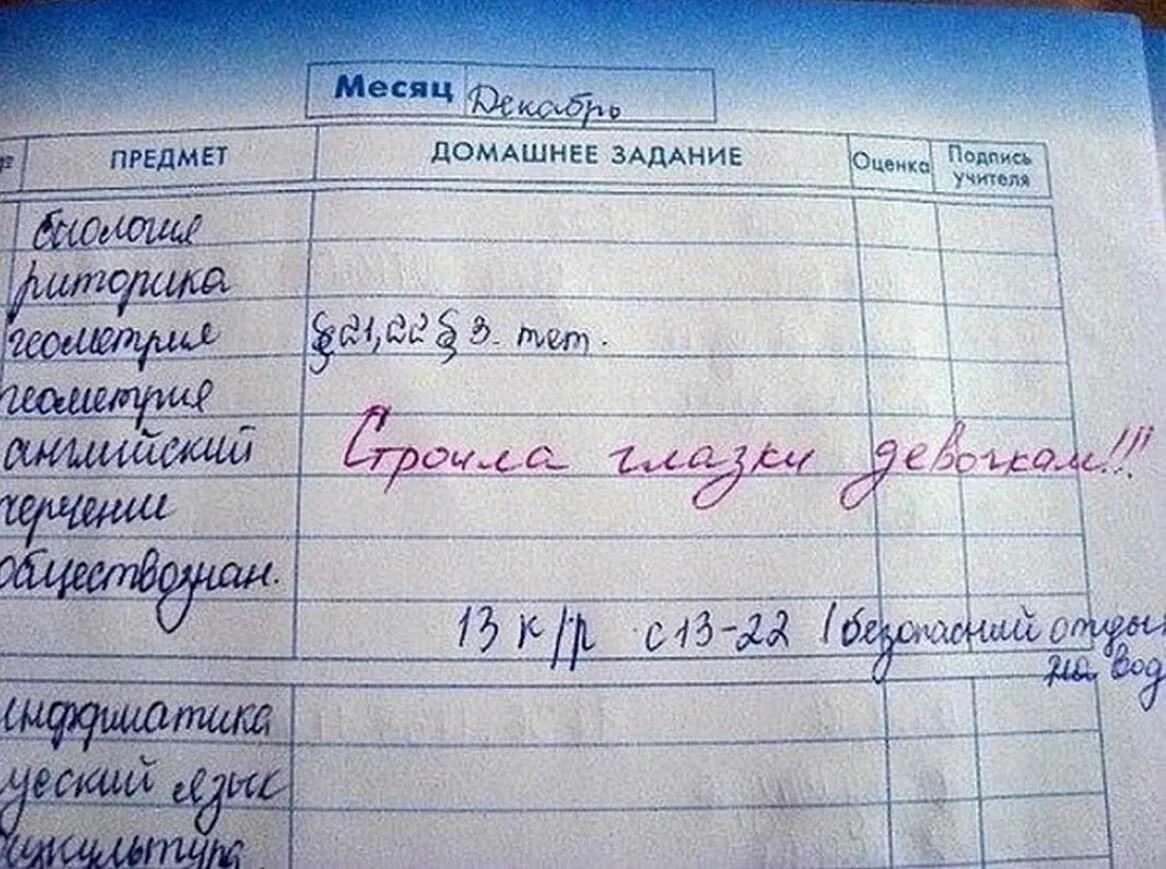 Месяц Декабрь
№ ПРЕДМЕТ ДОМАШНЕЕ ЗАДАНИЕ Оценка Подпись учителя
биология
риторика
геометрия §21,22 § 3. тет.
геометрия
английский Строила глазки девочкам!!!
черчение
обществознан.
13 к/р с 13-22 (безопасний отды
на вод
информатика
усский язык
зкультура